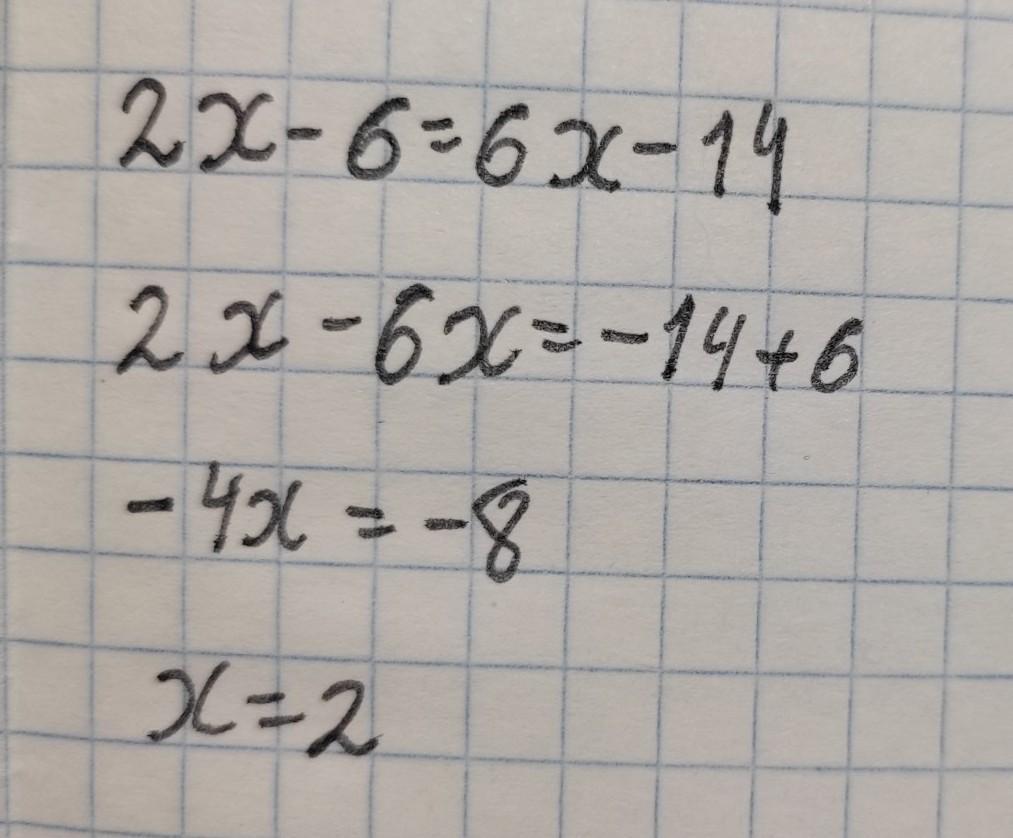 2x-6=6x-14
2x-6x=-14+6
-4x=-8
x=2